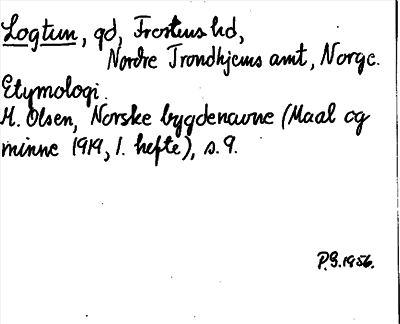 Logtun, gd, Frostens hd,
Nordre Trondhjems amt, Norge.
Etymologi.
M. Olsen, Norske bygdenavne (Maal og
minne 1919, 1. hefte), s. 9.
P.G. 1956.